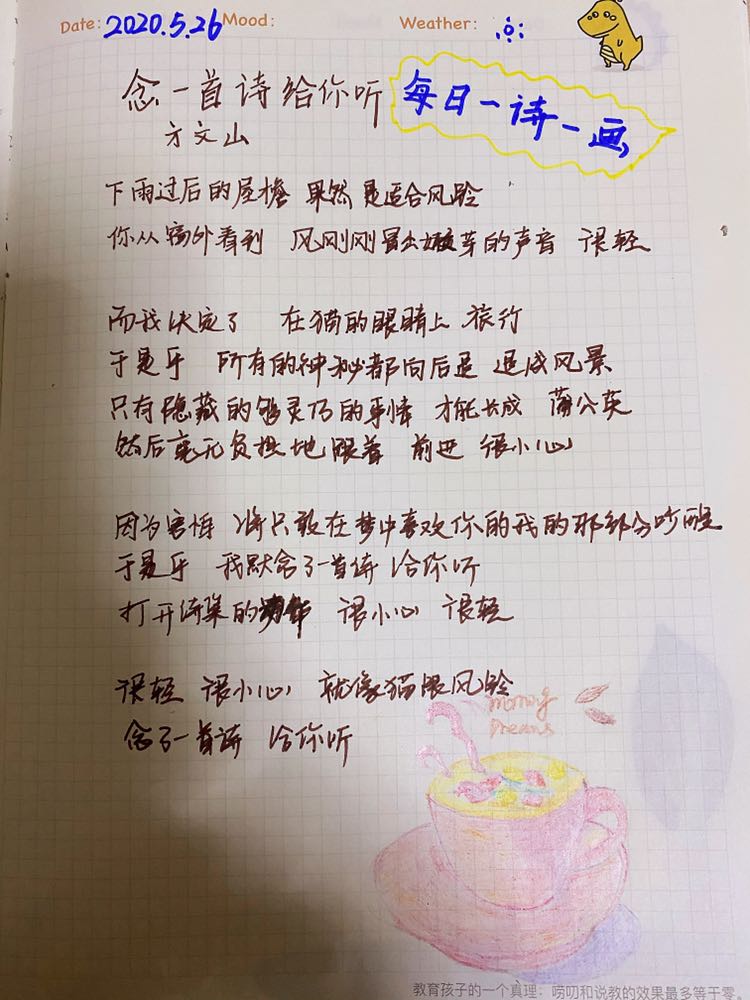 Date: 2020.5.26 Mood: Weather:
念一首诗给你听
每日一诗一画
方文山
下雨过后的屋檐 果然是适合风铃
你从窗外看到 风刚刚冒出嫩芽的声音 很轻
而我决定了 在猫的眼睛上 旅行
于是乎 所有的神秘都向后退 退成风景
只有隐藏的够灵巧的事情 才能长成 蒲公英
然后毫无负担地跟着 前进 很小心
因为害怕 将只敢在梦中喜欢你的我的那部分吵醒
于是乎 我默念了一首诗 给你听
打开诗集的 很小心 很轻
很轻 很小心 就像猫跟风铃
念了一首诗 给你听
morning
Dreams
教育孩子的一个真理：唠叨和说教的效果最多等于零